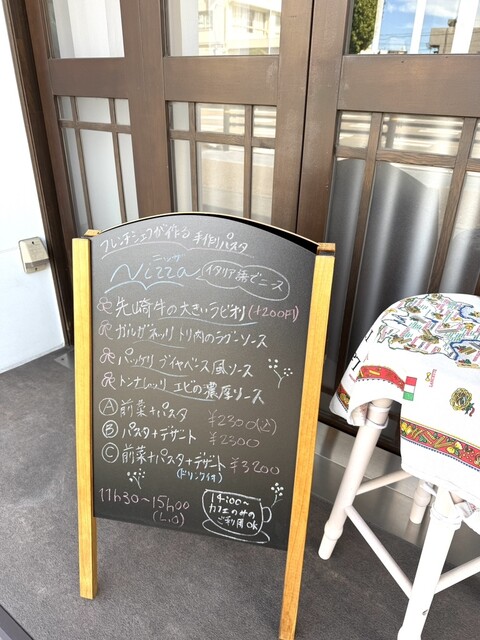 フレンチシェフが作る 手作りパスタ
ニッツァ
Nizza
イタリア語でニース
先崎牛の大きいラビオリ (+200円)
ガルガネッリ トリ肉のラグーソース
パッケリ ブイヤベース風ソース
トンナレッリ エビの濃厚ソース
Ⓐ 前菜+パスタ ¥2300(込)
Ⓑ パスタ+デザート ¥2300
Ⓒ 前菜+パスタ+デザート ¥3200
(ドリンク付)
11h30~15h00
(L.O)
14:00~
カフェのみの
ご利用OK